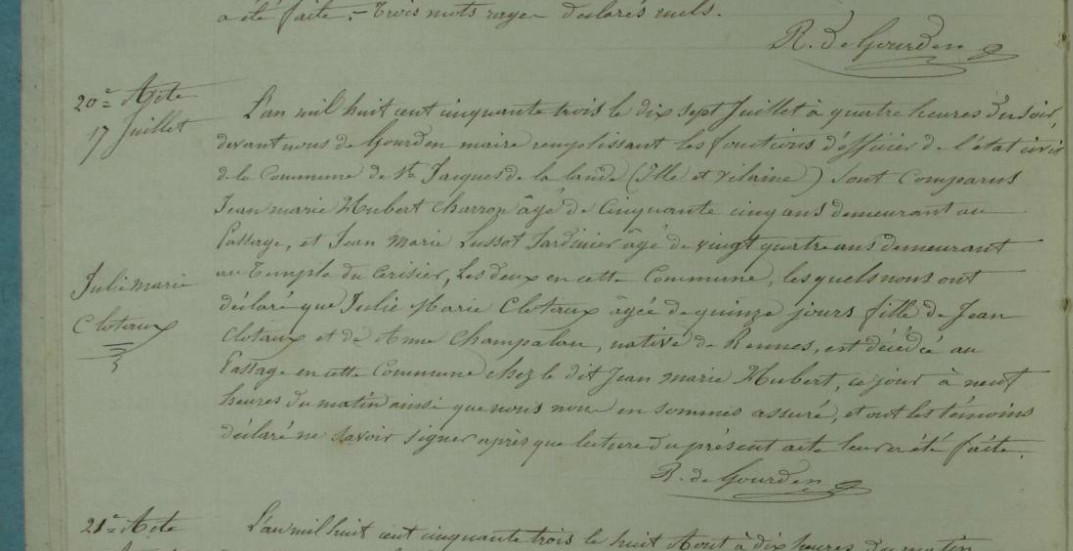 a été faite. – Trois mots rayer déclarés nuls.
R. de Gourden
20e Acte
17 Juillet
L'an mil huit cent cinquante trois le dix sept Juillet à quatre heures du soir,
devant nous de Gourden maire remplissant les fonctions d'officier de l'état civil
de la Commune de St Jacques de la lande (Ille et vilaine) sont comparus
Jean marie Hubert charron âgé de Cinquante cinq ans demeurant au
Passage, et Jean Marie Lussot Jardinier âgé de vingt quatre ans demeurant
au Temple du Cerisier, Les deux en cette Commune, lesquels nous ont
Julie marie
Clotaux
déclaré que Julie Marie Clotaux âgée de quinze jours fille de Jean
Clotaux et de Anne Champalou, native de Rennes, est décédée au
Passage en cette Commune chez le dit Jean marie Hubert, ce jour à neuf
heures du matin ainsi que nous nous en sommes assuré, et ont les témoins
déclaré ne savoir signer après que lecture du présent acte leur a été faite.
R. de Gourden
21e Acte
L'an mil huit cent cinquante trois le huit Aout à dix heures du matin